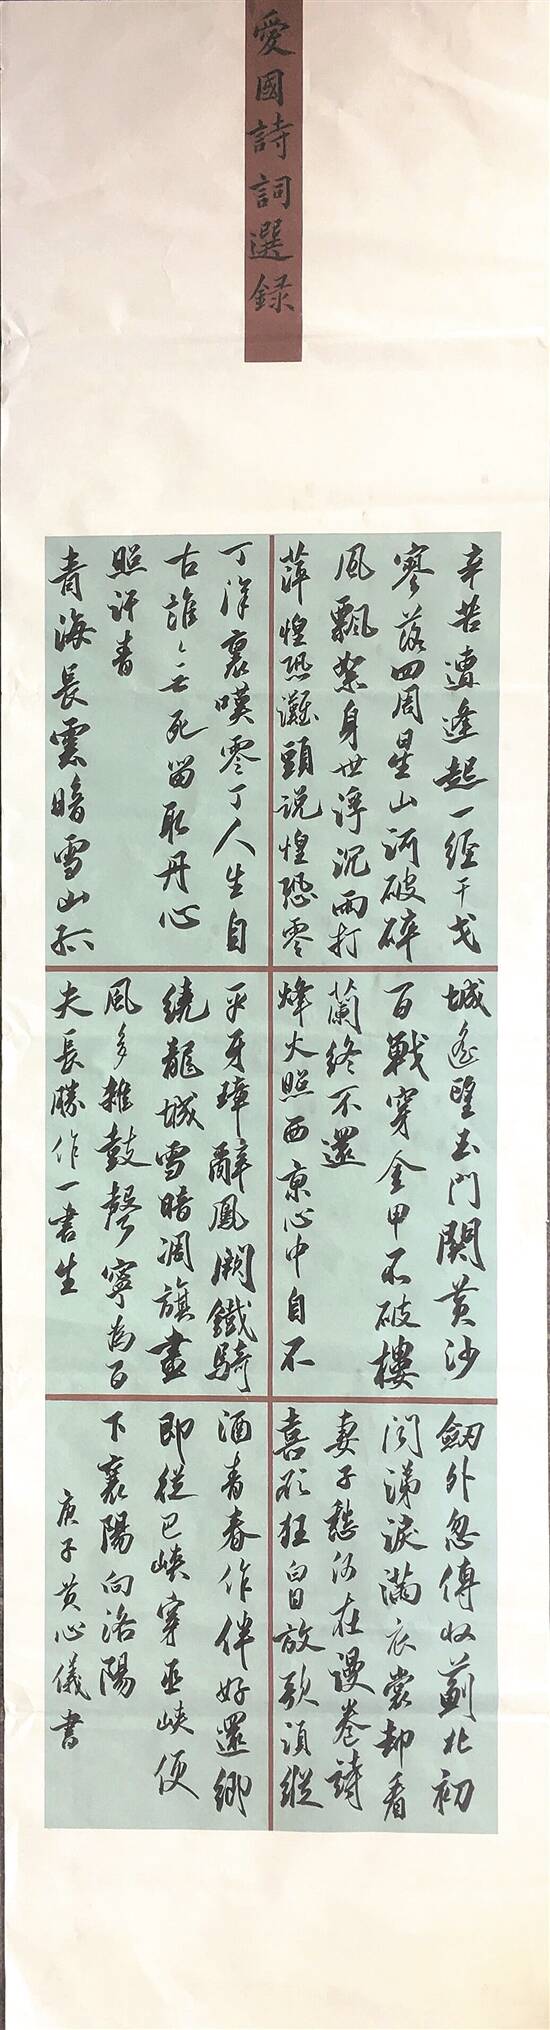 愛國詩詞選録
辛苦遭逢起一經干戈
寥落四周星山河破碎
風飄絮身世浮沉雨打
萍惶恐灘頭説惶恐零
丁洋裏嘆零丁人生自
古誰无死留取丹心
照汗青
青海長雲暗雪山孤
城遙望玉門關黄沙
百戰穿金甲不破樓
蘭終不還
烽火照西京心中自不
平牙璋辭鳳闕鐵騎
繞龍城雪暗凋旗畫
風多雜鼓聲寧為百
夫長勝作一書生
劒外忽傳收薊北初
聞涕淚滿衣裳却看
妻子愁何在漫卷詩
喜欲狂白日放歌須縱
酒青春作伴好還鄉
即從巴峽穿巫峽便
下襄陽向洛陽
庚子黄心儀書